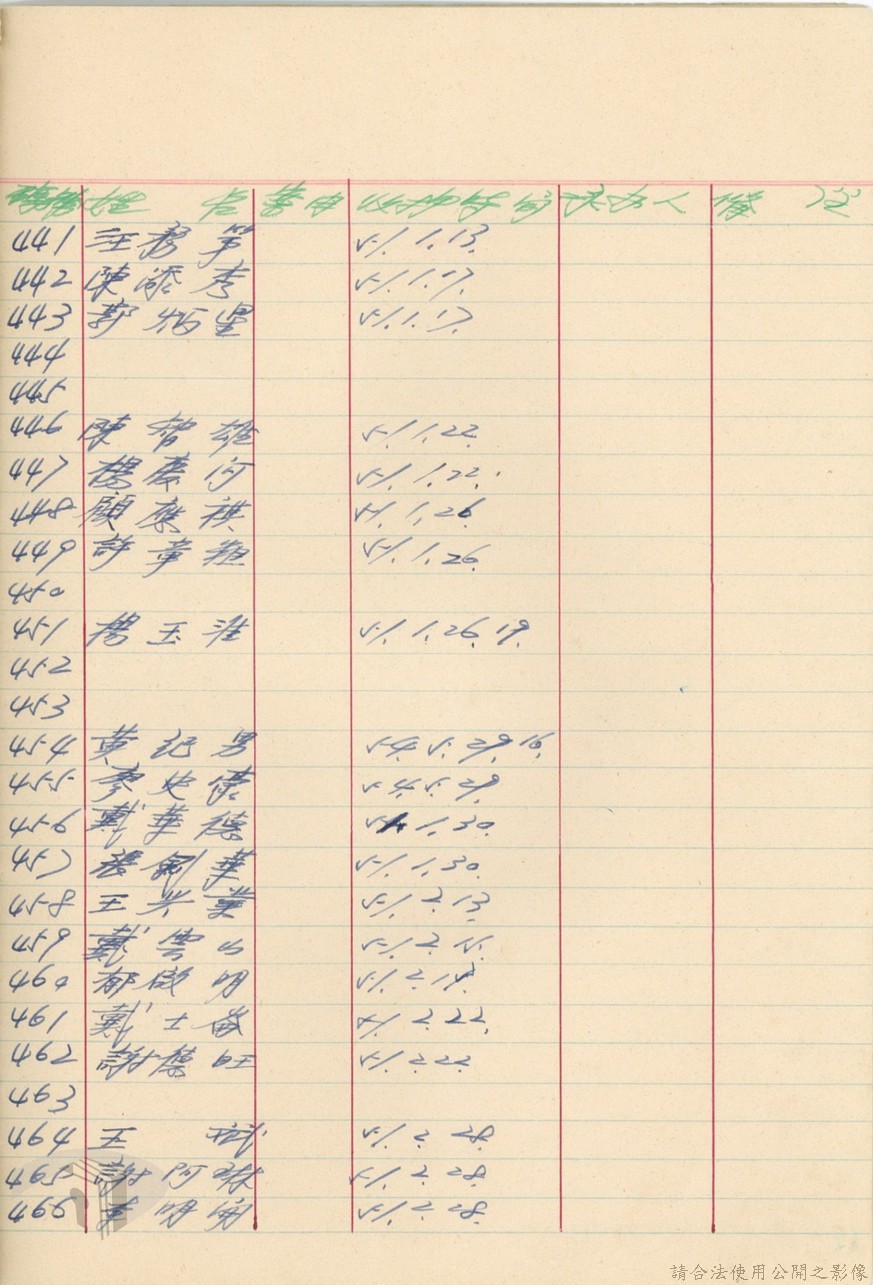 號 姓 名 備 註
441 汪 第 51.1.13.
442 陳添 51.1.17.
443 郭炳星 51.1.17.
444
445
446 陳智雄 51.1.22.
447 楊慶何 51.1.22.
448 顧應祺 51.1.26.
449 許章 51.1.26.
450
451 楊玉淮 51.1.26.19.
452
453
454 黃記男 54.5.29.16.
455 廖史 54.5.29.
456 戴華德 51.1.30.
457 張劍華 51.1.30.
458 王 業 51.2.13.
459 戴雲山 51.2.15.
460 郁啟明 51.2.
461 戴士 51.2.22.
462 謝德旺 51.2.22.
463
464 王 斌 51.2.28.
465 謝阿琳 51.2.28.
466 李明 51.2.28.
請合法使用公開之影像